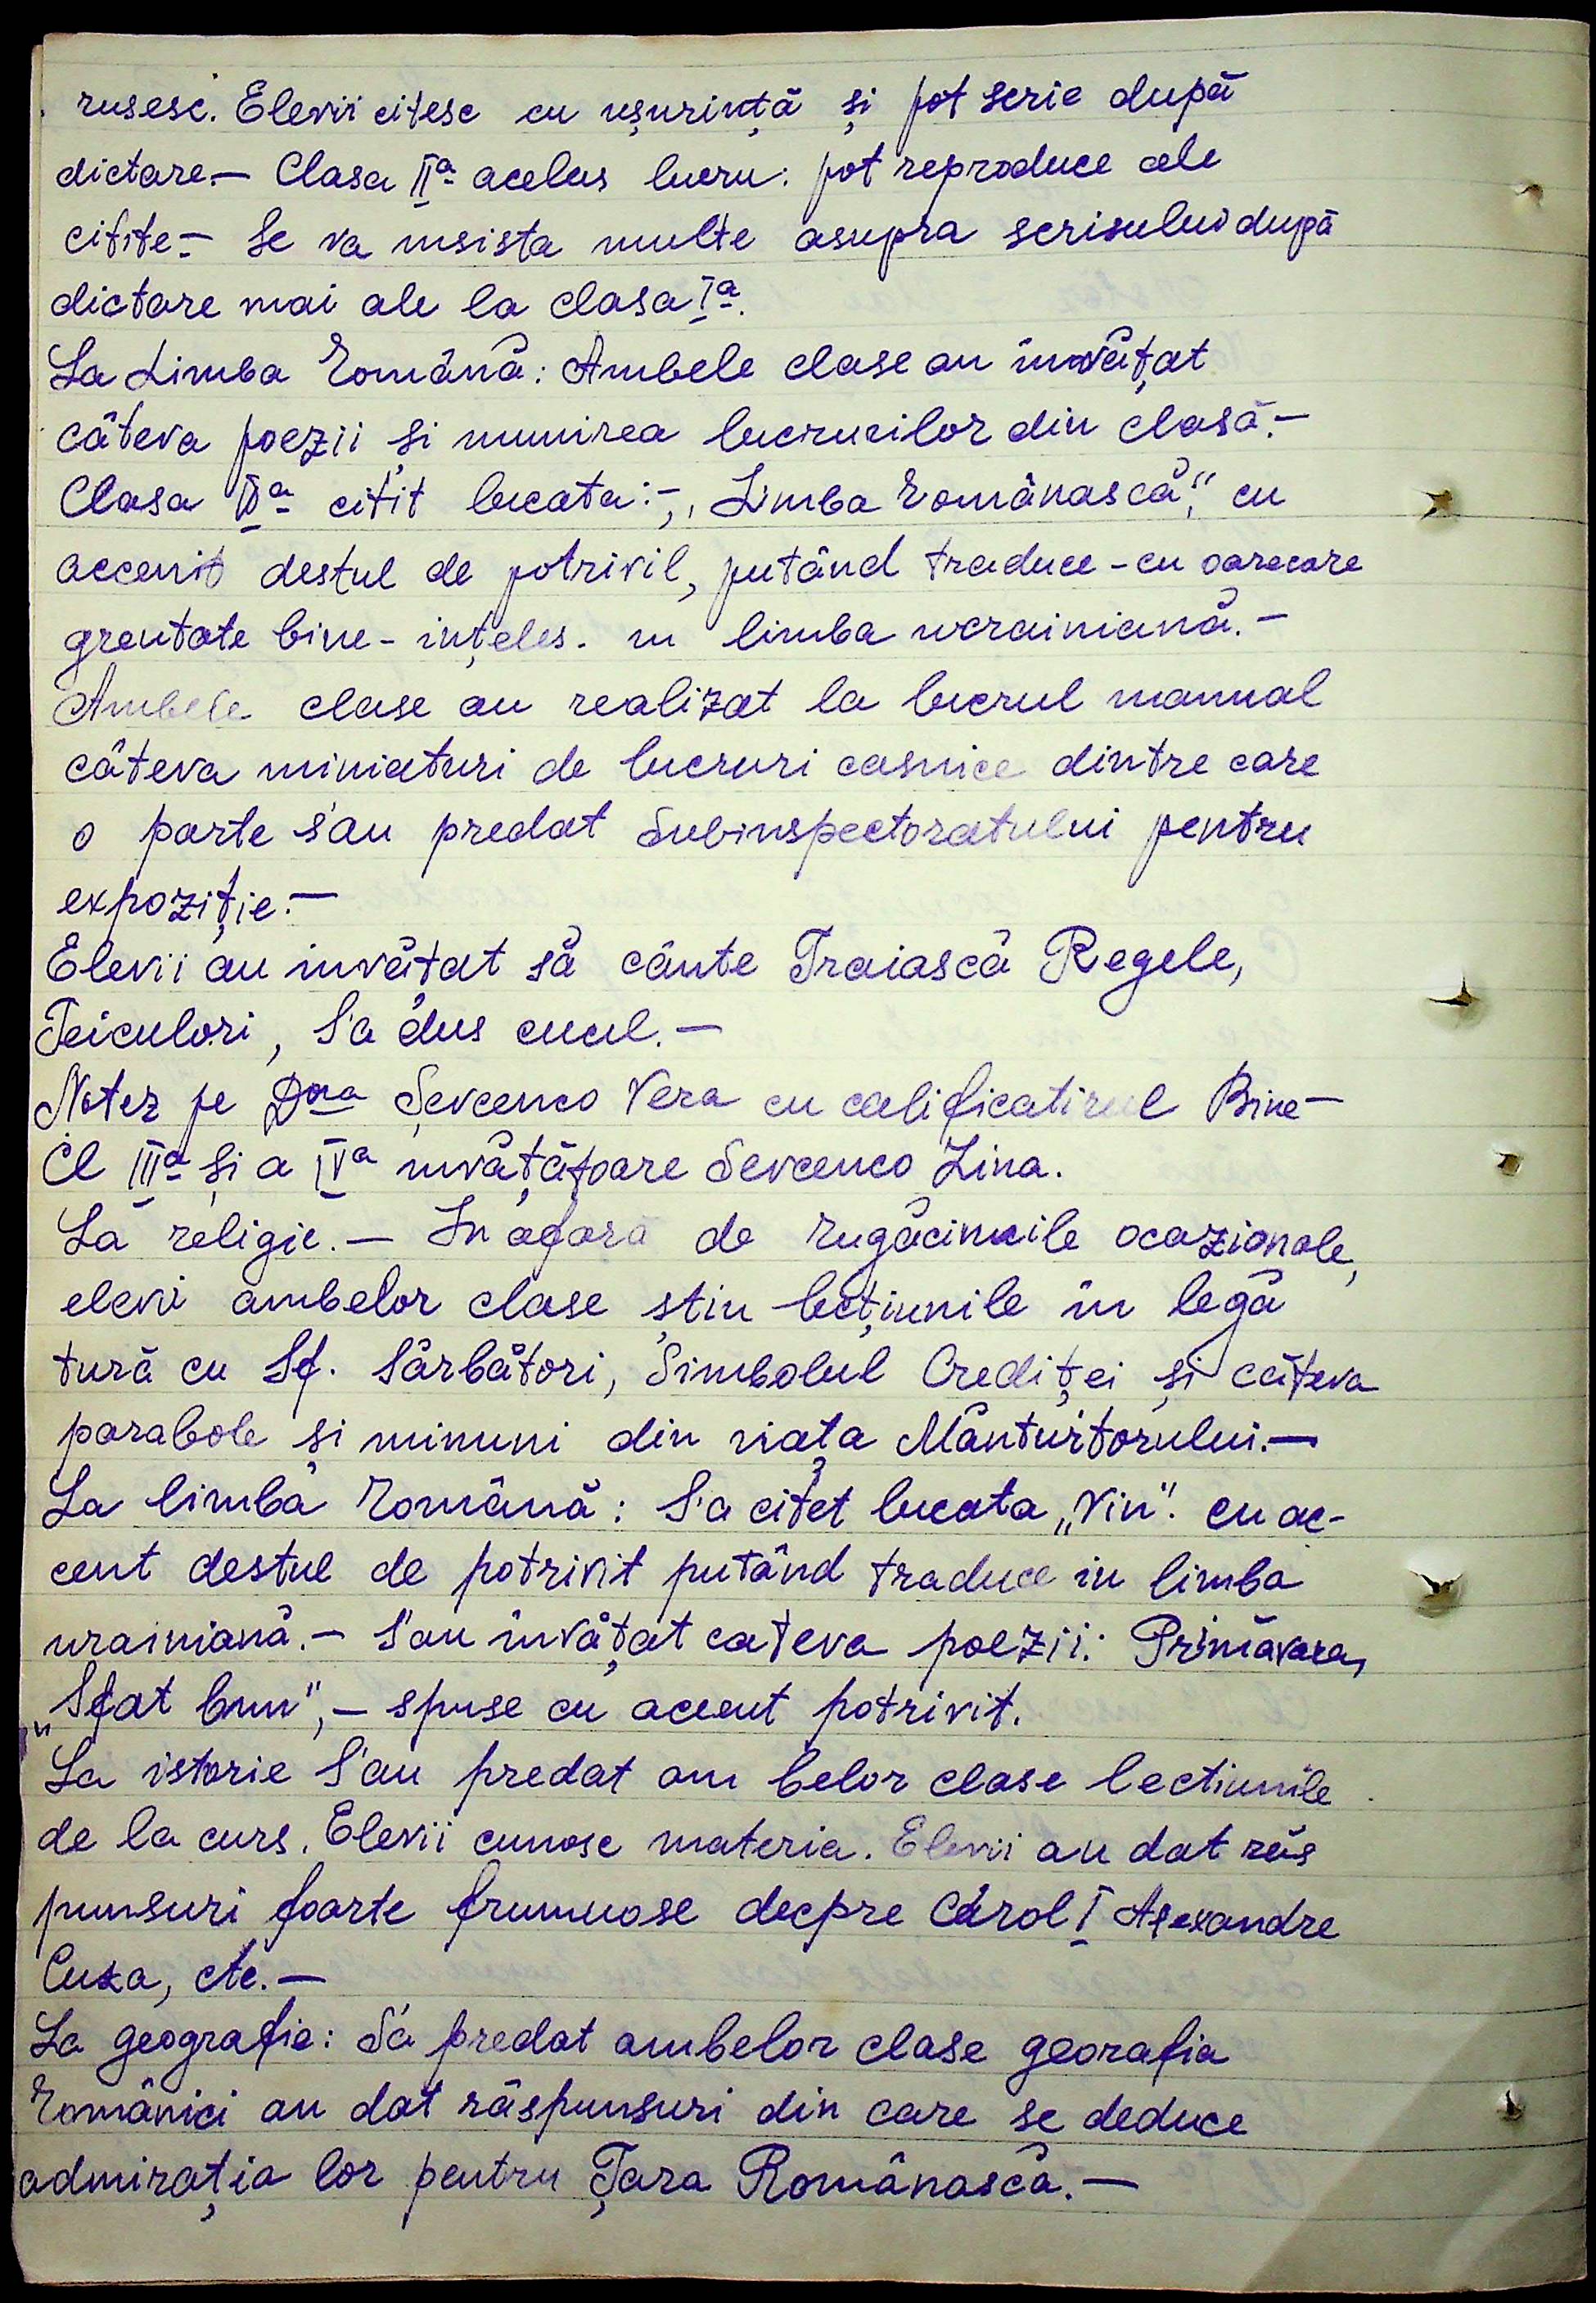 rusesc. Elevii citesc cu ușurință și pot scrie după
dictare.— Clasa IIª acelas lucru: pot reproduce cele
citite.— Se va insista multe asupra scrisului după
dictare mai ale la clasa Iª.
La Limba Română: Ambele clase au învățat
câteva poezii și numirea lucrurilor din clasă.—
Clasa IIª citit bucata:—,, Limba Românască", cu
accent destul de potrivil, putând traduce - cu oarecare
greutate bine - ințeles. in limba ucrainiană.—
Ambele clase au realizat la lucrul manual
câteva miniaturi de lucruri casnice dintre care
o parte s'au predat Subinspectoratului pentru
expoziție.—
Elevii au învățat să cânte Traiască Regele,
Teiculori, S'a dus cucul.—
Notez pe Dna Șevcenco Vera cu calificativul Bine—
Cl IIIª și a IVª învățătoare Sevcenco Zina.
La religie.— In afară de rugăciunile ocazionale,
elevii ambelor clase știu lecțiunile în legă
tură cu Sf. Sărbători, Simbolul Crediței și câteva
parabole și minuni din viața Mântuitorului.—
La limba Română: S'a citet bucata „Vin". cu ac-
cent destul de potrivit putând traduce in limba
urainiană.— S'au învățat cateva poezii: Primăvara,
„Sfat bun",— spuse cu accent potrivit.
La istorie S'au predat am belor clase lectiunile
de la curs. Elevii cunosc materia. Elevii au dat răs
punsuri foarte frumuose decpre Carol I Alexandre
Cuza, etc.—
La geografie: S'a predat ambelor clase georafia
Românici au dat răspunsuri din care se deduce
admirația lor pentru Țara Românască.—